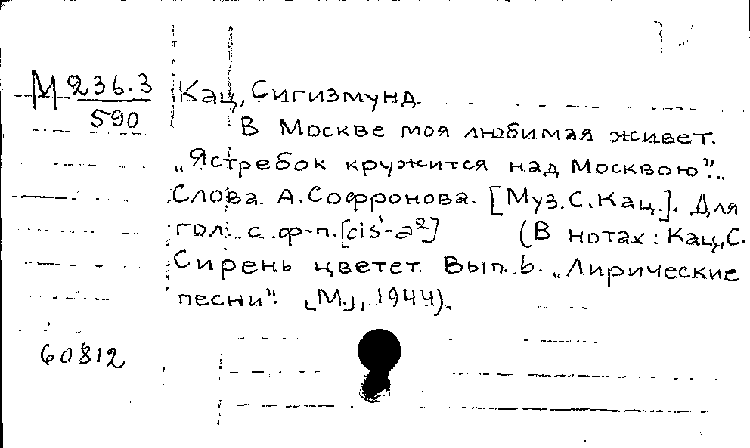 М 236.3
590
Кац, Сигизмунд.
В Москве моя любимая живет.
„Ястребок кружится над Москвою"..
Слова А. Софронова. [Муз. С. Кац.]. Для
гол. с ф-п. [cis¹-a²] (В нотах: Кац, С.
Сирень цветет. Вып. 6. „Лирические
песни". [М.], 1944).
60812